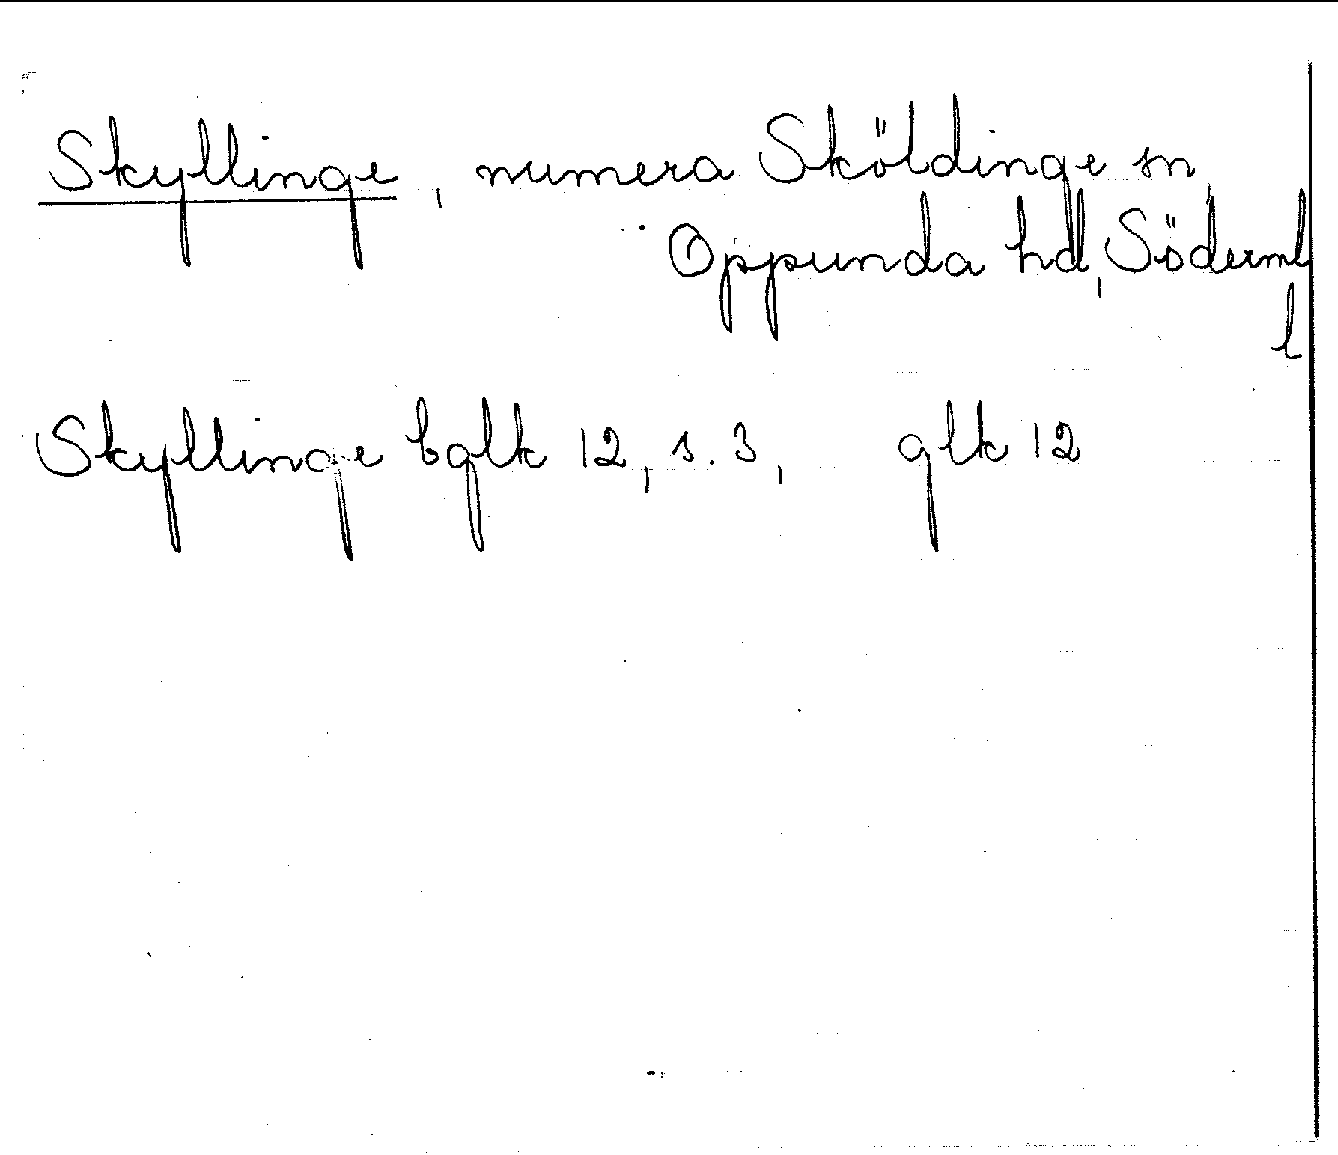 Skyllinge, numera Sköldinge sn,
Oppunda hd, Söderml
l
Skyllinge bglk 12, s. 3, glk 12